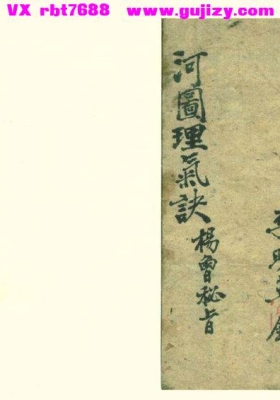 VX rbt7688 www.gujizy.com
河圖理氣訣
楊曾秘旨